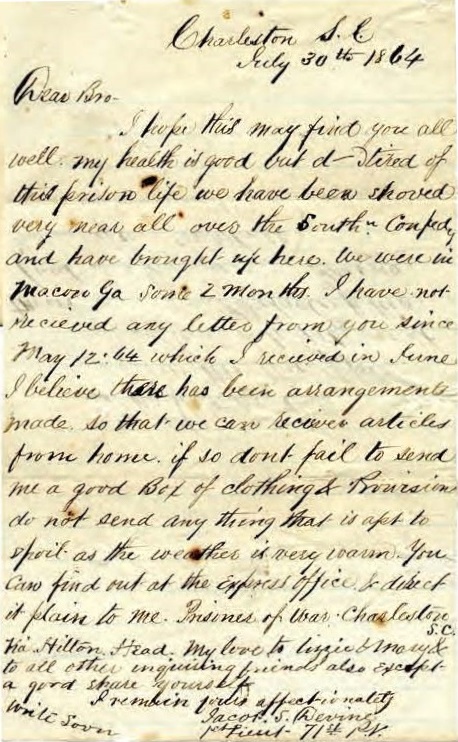 Charleston S. C
July 30th 1864
Dear Bro-
I hope this may find you all
well. my health is good but d- tired of
this prison life we have been shoved
very near all over the Southn Confedy
and have brought up here. We were in
Macon Ga some 2 Months. I have not
recieved any letter from you since
May 12:64 which I recieved in June
I believe there has been arrangements
made so that we can reciever articles
from home. if so dont fail to send
me a good Box of clothing & Provision
do not send any thing that is apt to
spoil as the weather is very warm. You
can find out at the express office & direct
it plain to me. Prisoner of War. Charleston
S.C.
Via Hilton Head. My love to Lizzie & Mary &
to all other inquiring friends also except
a good share yourself
I remain yours affectionately
Write Soon
Jacob. S. Devine
1st Lieut- 71st P.V.